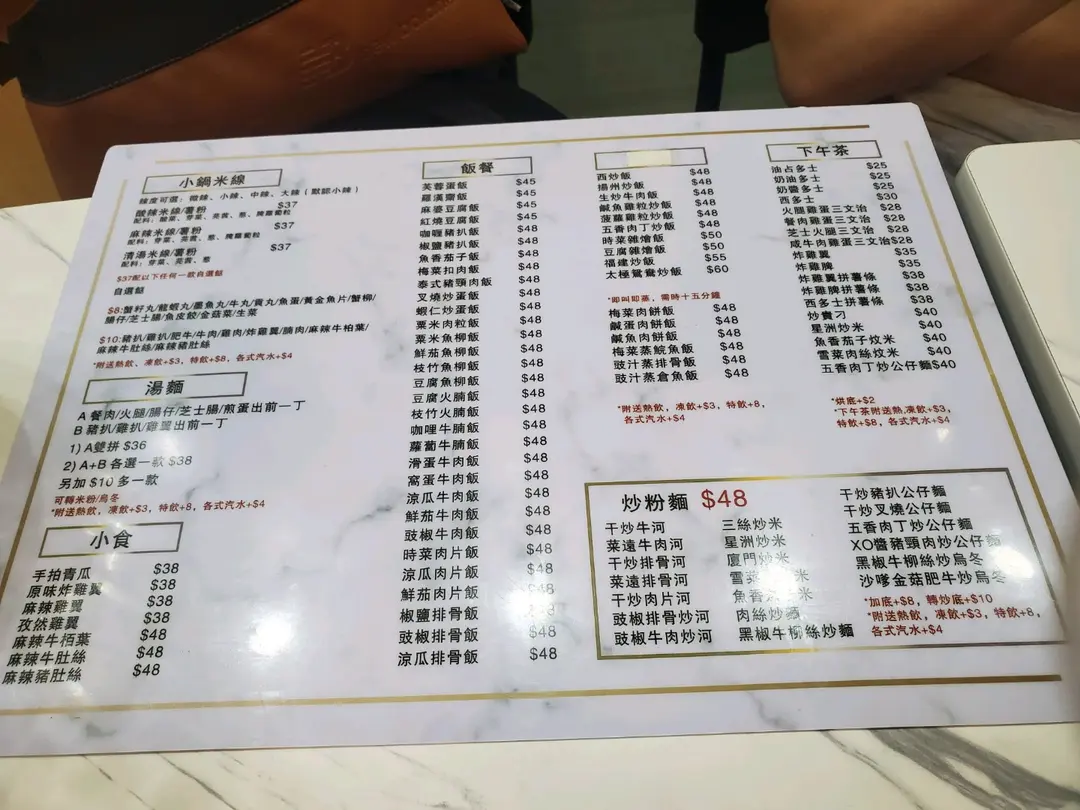 小鍋米線
辣度可選：微辣、小辣、中辣、大辣（默認小辣）
酸辣米線/薯粉 $37
配料：酸菜、芽菜、芫茜、葱、脢蘿蔔粒
麻辣米線/薯粉 $37
配料：芽菜、芫茜、葱、脢蘿蔔粒
清湯米線/薯粉 $37
配料：芽菜、芫茜、葱
$37配以下任何一款自選餸
自選餸
$8:蟹籽丸/龍蝦丸/墨魚丸/牛丸/貢丸/魚蛋/黃金魚片/蟹柳/
腸仔/芝士腸/魚皮餃/金菇菜/生菜
$10:豬扒/雞扒/肥牛/牛肉/雞肉/炸雞翼/腩肉/麻辣牛柏葉/
麻辣牛肚絲/麻辣豬肚絲
*附送熱飲、凍飲+$3，特飲+$8，各式汽水+$4
湯麵
A 餐肉/火腿/腸仔/芝士腸/煎蛋出前一丁
B 豬扒/雞扒/雞翼出前一丁
1) A雙拼 $36
2) A+B 各選一款 $38
另加 $10 多一款
可轉米粉/烏冬
*附送熱飲，凍飲+$3，特飲+8，各式汽水+$4
小食
手拍青瓜 $38
原味炸雞翼 $38
麻辣雞翼 $38
孜然雞翼 $38
麻辣牛栢葉 $48
麻辣牛肚絲 $48
麻辣豬肚絲 $48
飯餐
芙蓉蛋飯 $45
羅漢齋飯 $45
麻婆豆腐飯 $45
紅燒豆腐飯 $45
咖喱豬扒飯 $48
椒鹽豬扒飯 $48
魚香茄子飯 $48
梅菜扣肉飯 $48
泰式豬頸肉飯 $48
叉燒炒蛋飯 $48
蝦仁炒蛋飯 $48
粟米肉粒飯 $48
粟米魚柳飯 $48
鮮茄魚柳飯 $48
枝竹魚柳飯 $48
豆腐魚柳飯 $48
豆腐火腩飯 $48
枝竹火腩飯 $48
咖哩牛腩飯 $48
蘿蔔牛腩飯 $48
滑蛋牛肉飯 $48
窩蛋牛肉飯 $48
涼瓜牛肉飯 $48
鮮茄牛肉飯 $48
豉椒牛肉飯 $48
時菜肉片飯 $48
涼瓜肉片飯 $48
鮮茄肉片飯 $48
椒鹽排骨飯 $48
豉椒排骨飯 $48
涼瓜排骨飯 $48
西炒飯 $48
揚州炒飯 $48
生炒牛肉飯 $48
鹹魚雞粒炒飯 $48
菠蘿雞粒炒飯 $48
五香肉丁炒飯 $48
時菜雜燴飯 $50
豆腐雜燴飯 $50
福建炒飯 $55
太極鴛鴦炒飯 $60
*即叫即蒸，需時十五分鐘
梅菜肉餅飯 $48
鹹蛋肉餅飯 $48
鹹魚肉餅飯 $48
梅菜蒸鯇魚飯 $48
豉汁蒸排骨飯 $48
豉汁蒸倉魚飯 $48
*附送熱飲，凍飲+$3，特飲+8，
各式汽水+$4
下午茶
油占多士 $25
奶油多士 $25
奶醬多士 $25
西多士 $30
火腿雞蛋三文治 $28
餐肉雞蛋三文治 $28
芝士火腿三文治 $28
咸牛肉雞蛋三文治$28
炸雞翼 $35
炸雞脾 $35
炸雞翼拼薯條 $38
炸雞脾拼薯條 $38
西多士拼薯條 $38
炒貴刁 $40
星洲炒米 $40
魚香茄子炆米 $40
雪菜肉絲炆米 $40
五香肉丁炒公仔麵$40
*烘底+$2
*下午茶附送熱,凍飲+$3，
特飲+$8，各式汽水+$4
炒粉麵 $48
干炒牛河
菜遠牛肉河
干炒排骨河
菜遠排骨河
干炒肉片河
豉椒排骨炒河
豉椒牛肉炒河
三絲炒米
星洲炒米
廈門炒米
雪菜 米
魚香 米
肉絲炒麵
黑椒牛柳絲炒麵
干炒豬扒公仔麵
干炒叉燒公仔麵
五香肉丁炒公仔麵
XO醬豬頸肉炒公仔麵
黑椒牛柳絲炒烏冬
沙嗲金菇肥牛炒烏冬
*加底+$8，轉炒底+$10
*附送熱飲，凍飲+$3，特飲+8，
各式汽水+$4